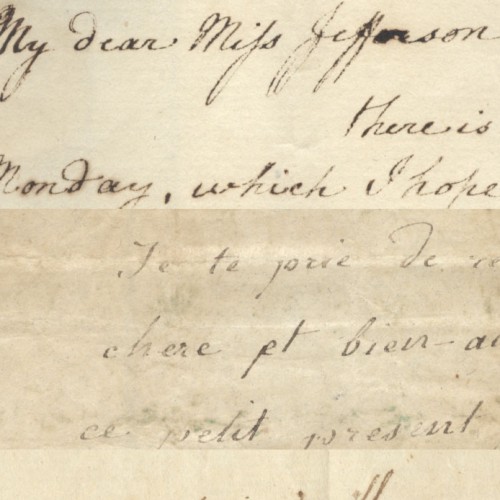 My dear Miss Jefferson
there is
Monday, which I hope
Je te prie de
chere et bien-ai
ce petit present